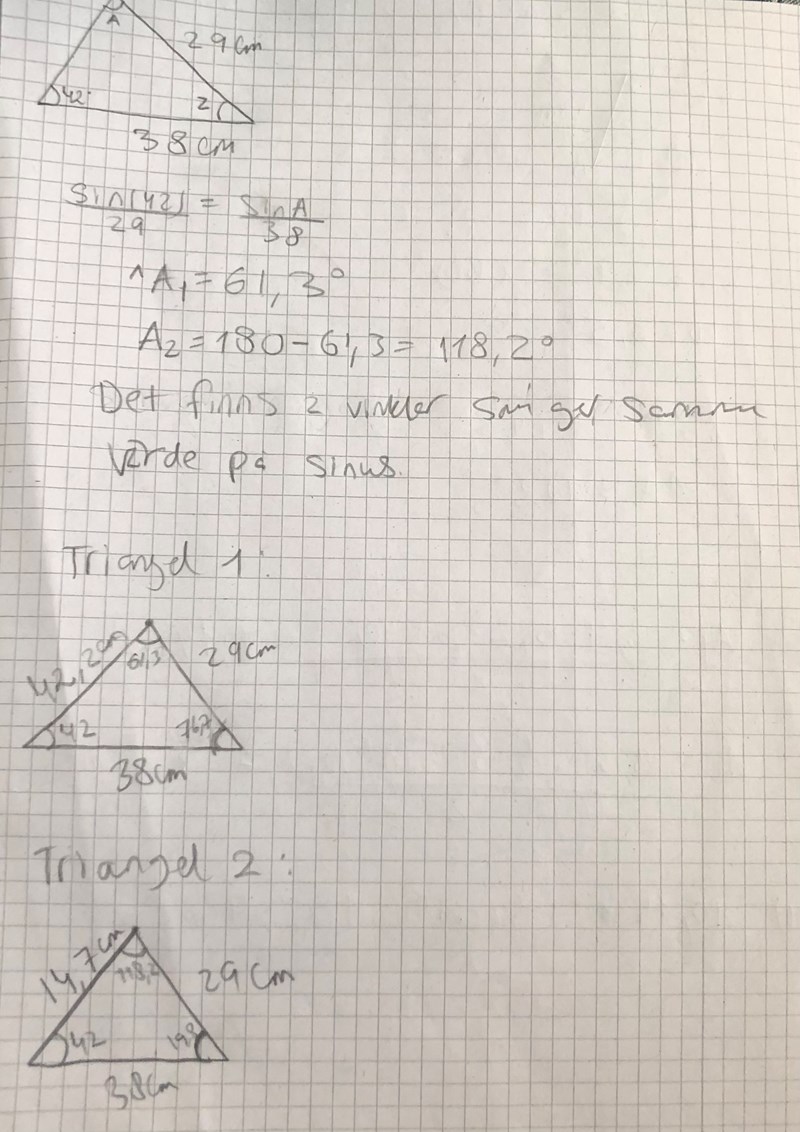 A
29cm
42°
2
38cm
sin(42)/29 = sinA/38
^A₁ = 61,3°
A₂ = 180 - 61,3 = 118,2°
Det finns 2 vinklar som ger samma
värde på sinus.
Triangel 1:
42,2cm
61,3
29cm
42
76,7
38cm
Triangel 2:
14,7cm
118,2
29cm
42
19,8
38cm